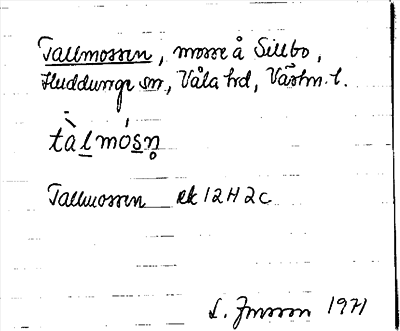 Tallmossen, mosse å Sillbo,
Huddunge sn, Våla hd, Västm. l.
tàlmósn̥
Tallmossen ek 12 H 2 c
L. 1971